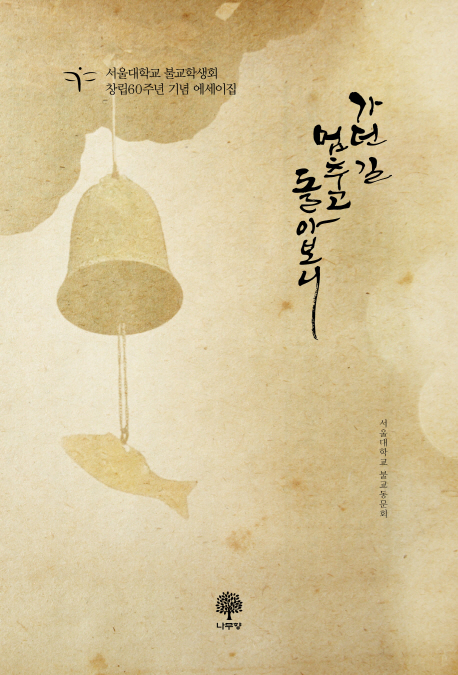 서울대학교 불교학생회
창립60주년 기념 에세이집
가던 길
멈추고
돌아보니
서울대학교 불교동문회
나무향